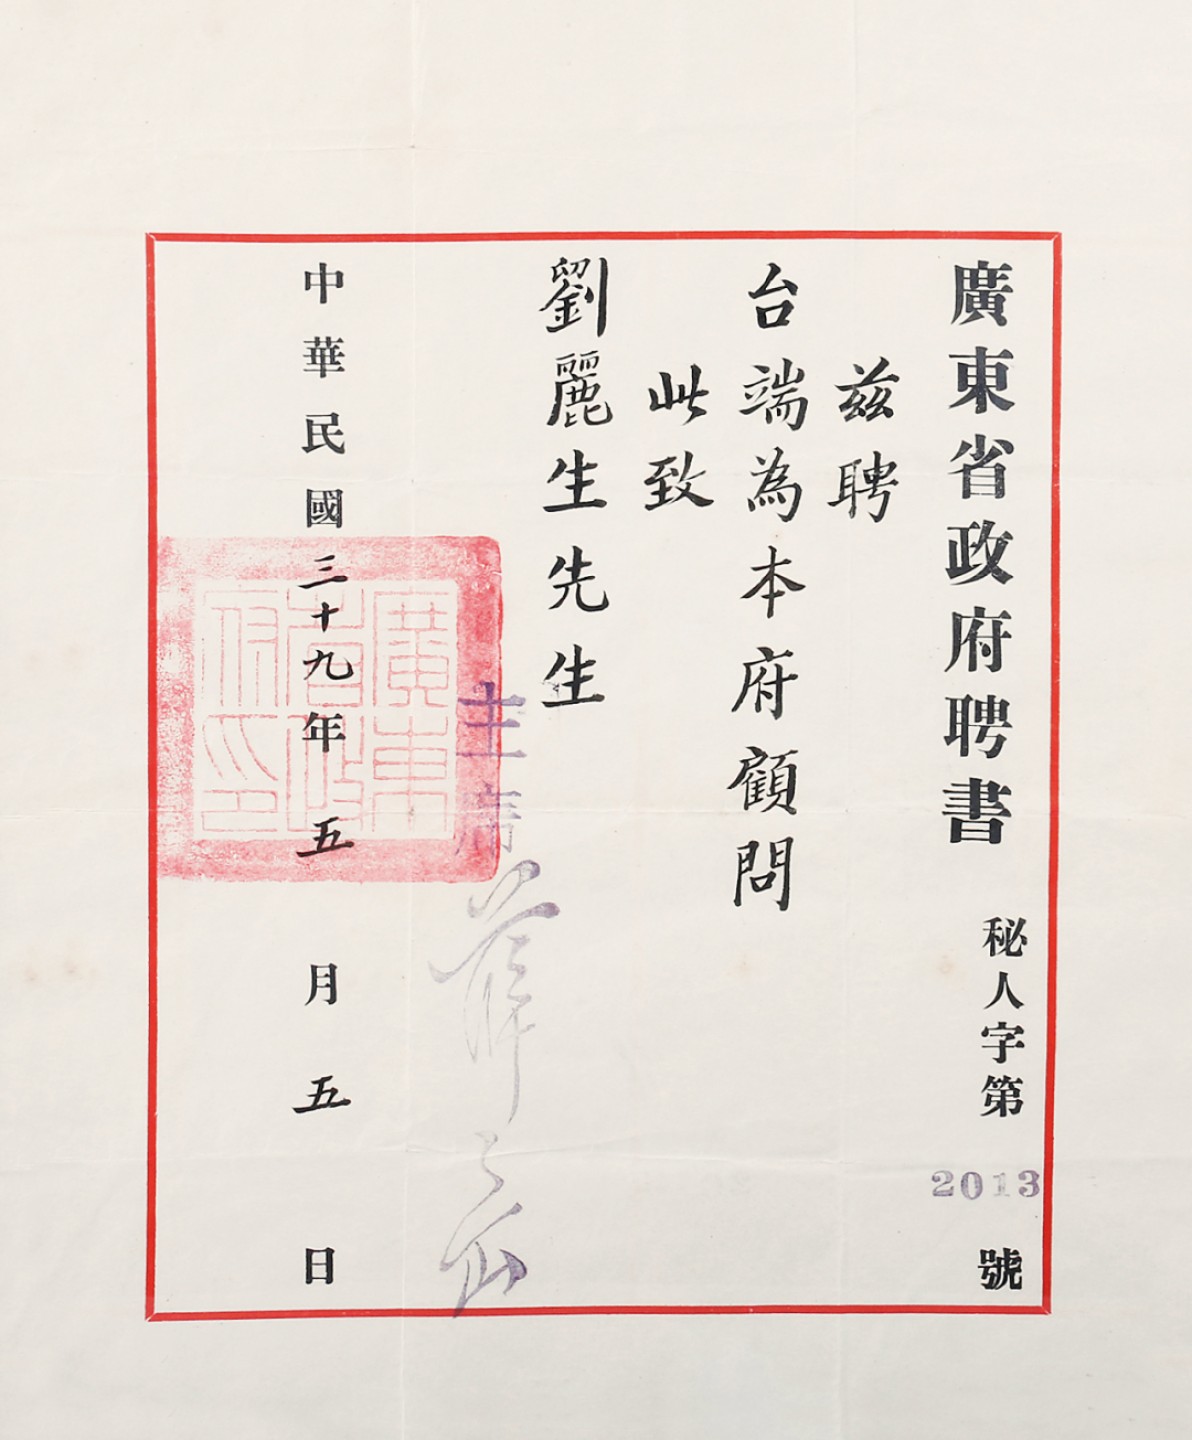 廣東省政府聘書
秘人字第2013號
茲聘
台端為本府顧問
此致
劉麗生先生
主席 薛岳
中華民國三十九年五月五日
廣東
省政
府印